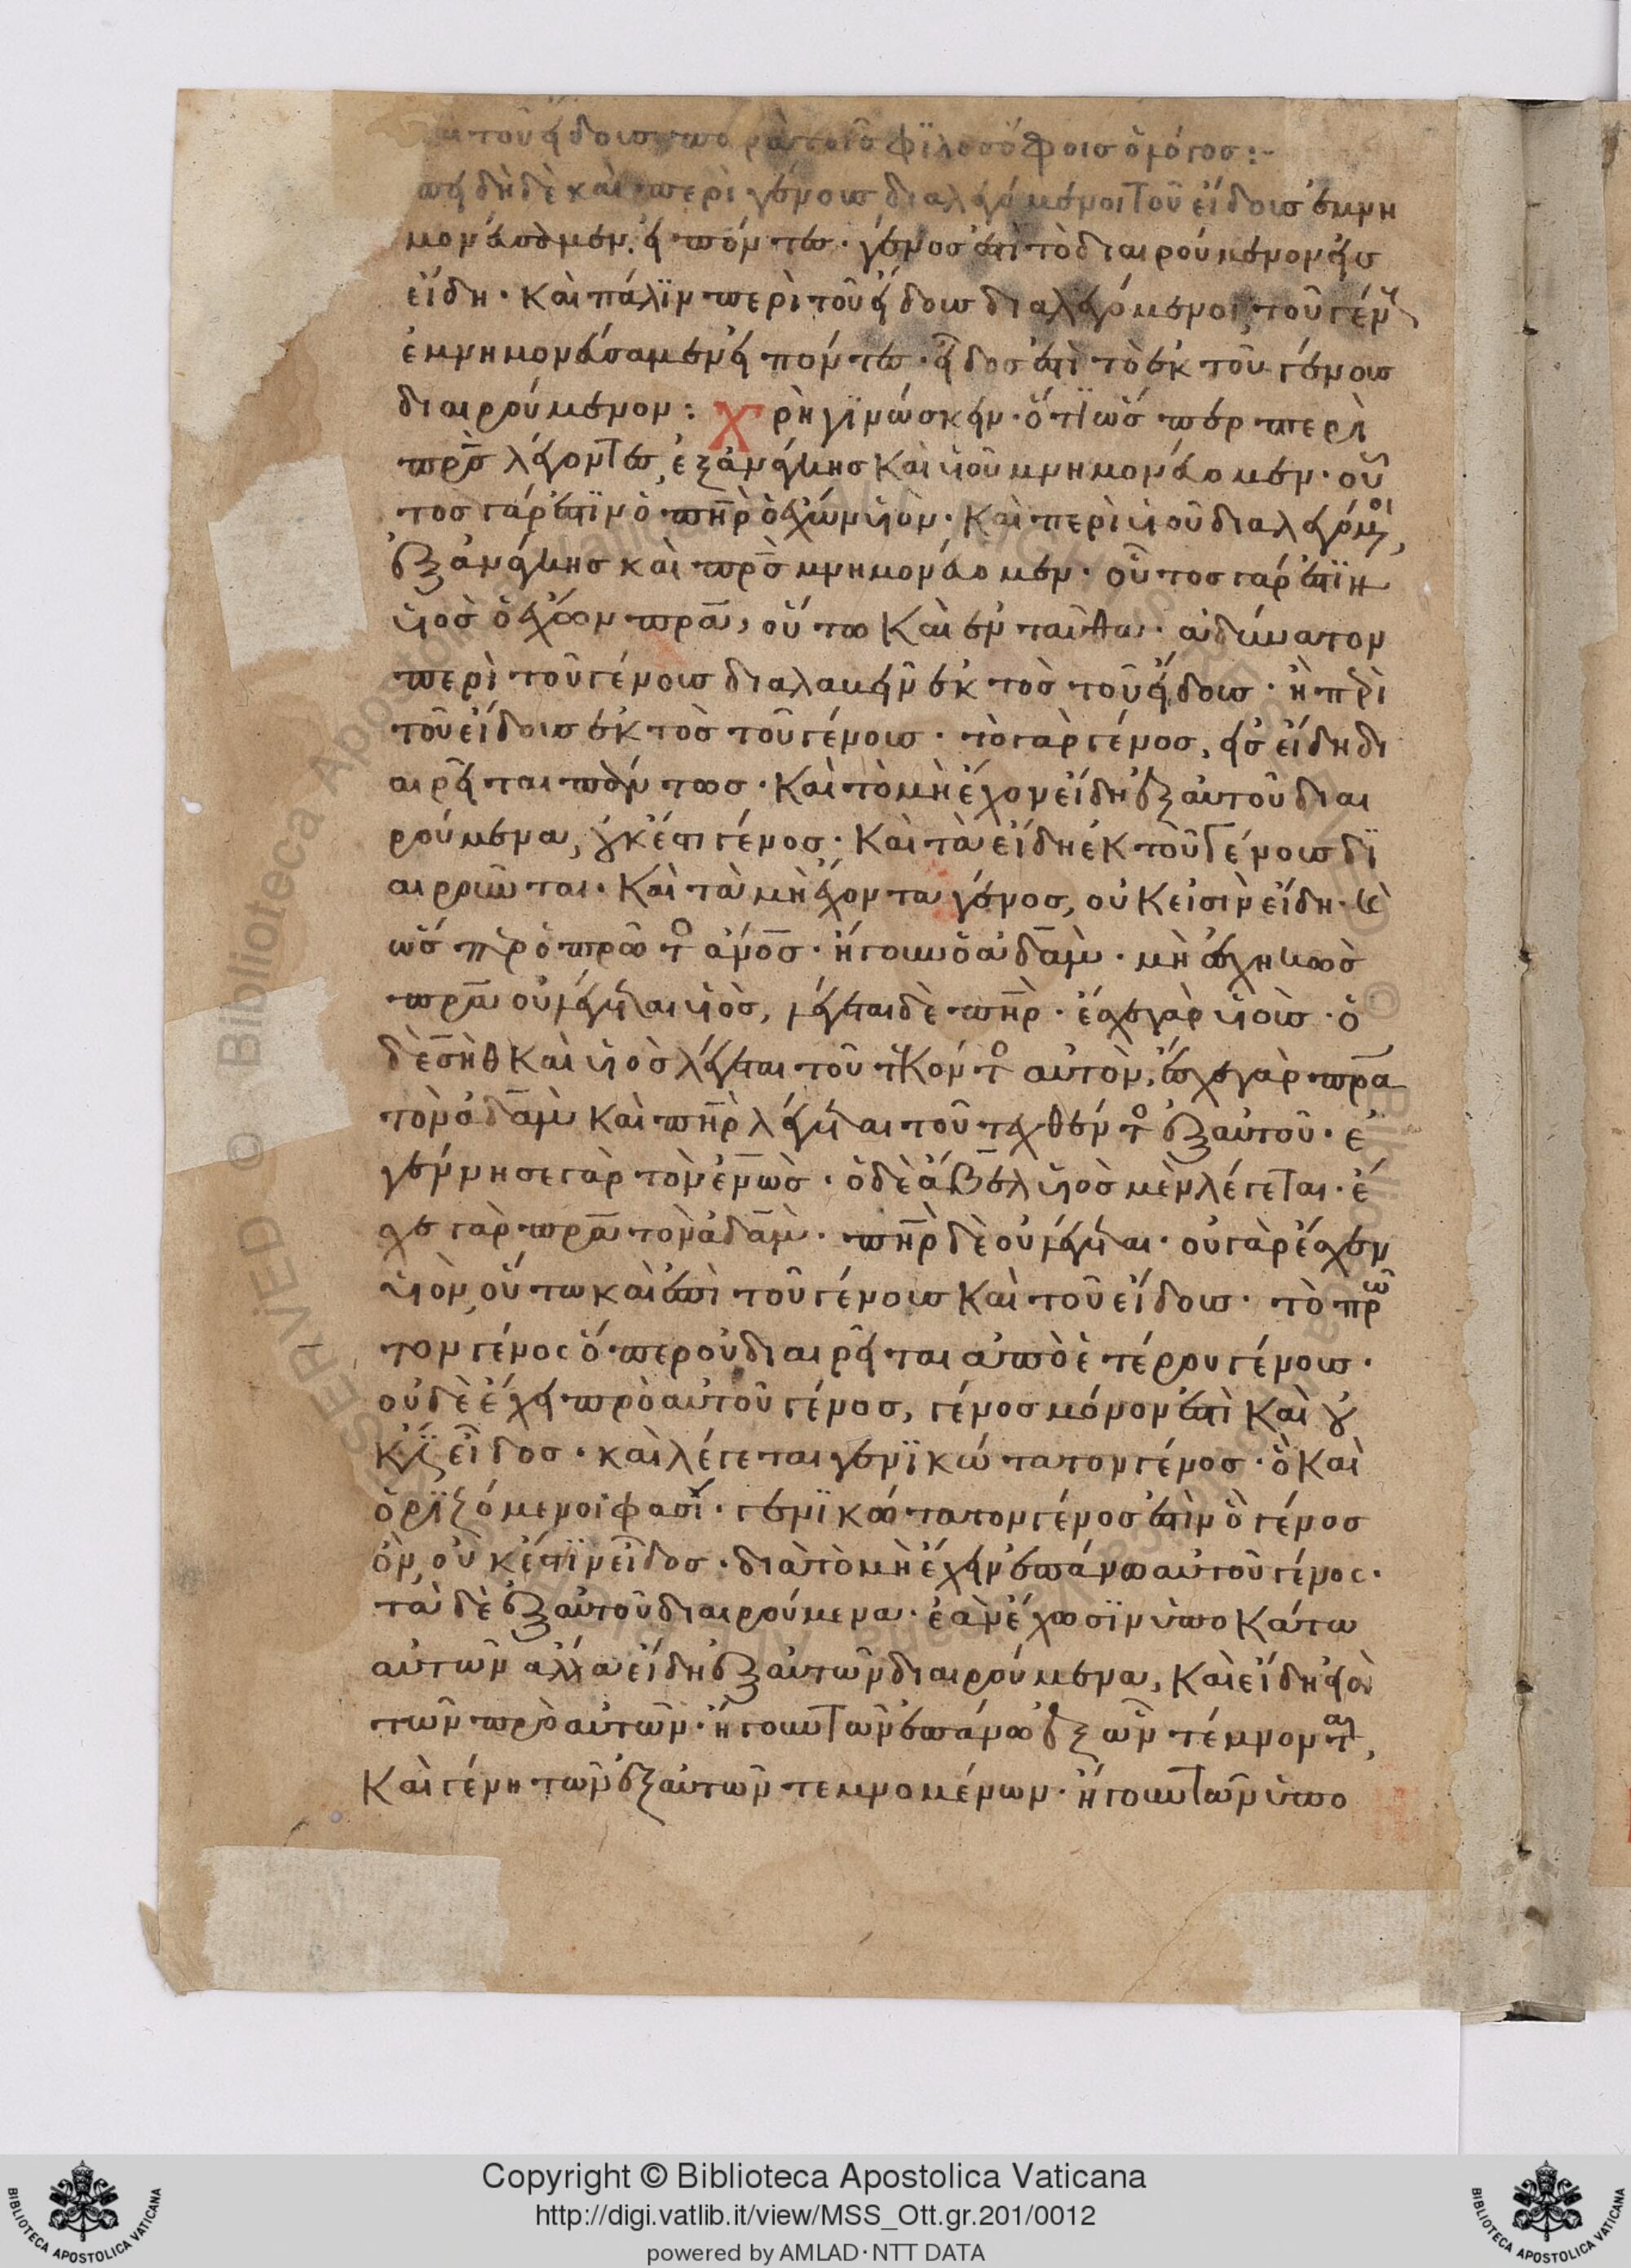 τοῦ εἴδους παρὰ τοῖς φιλοσόφοις ὁ λόγος :-
ἐπειδὴ δὲ καὶ περὶ γένους διαλεγόμενοι τοῦ εἴδους ἐμνη
μονεύσαμεν. εἰπόντες· γένος ἐστὶ τὸ διαιρούμενον εἰς
εἴδη· καὶ πάλϊν περὶ τοῦ εἴδους διαλεγόμενοι, τοῦ γένους
ἐμνημονεύσαμεν εἰπόντες· εἶδος ἐστὶ τὸ ἐκ τοῦ γένους
διαιρούμενον : Χρὴ γϊνώσκειν· ὅτι ὥσπερ περὶ
πρς λέγοντες, ἐξανάγκης καὶ υἱοῦ μνημονεύομεν· οὗ
τος γάρ ἐστϊν ὁ πηρ ὁ ἔχων υἱόν· καὶ περὶ υἱοῦ διαλεγόμοι,
ἐξανάγκης καὶ πρς μνημονεύομεν· οὗτος γάρ ἐστϊν
υἱὸς ὁ ἔχων πρα, οὕτω καὶ ἐνταῦθα· ἀδύνατον
περὶ τοῦ γένους διαλαβεῖν ἐκτὸς τοῦ εἴδους· ἢ πρὶ
τοῦ εἴδους ἐκτὸς τοῦ γένους· τὸ γὰρ γένος, εἰς εἴδη δι
αιρεῖται πάντως· καὶ τὸ μὴ ἔχον εἴδη ἐξ αὐτοῦ διαι
ρούμενα, οὐκ ἔστι γένος· καὶ τὰ εἴδη ἐκ τοῦ γένους δϊ
αιροῦνται· καὶ τὰ μὴ ἔχοντα γένος, οὐκ εἰσὶν εἴδη· καὶ
ὥσπερ ὁ πρῶτος ἄνος· ἤγουν ὁ ἀδὰμ· μὴ ἐσχηκὼς
πρα οὐ λέγεται υἱὸς, λέγεται δὲ πηρ· ἔσχε γὰρ υἱοὺς· ὁ
δὲ σὴθ καὶ υἱὸς λέγεται τοῦ τεκόντος αὐτὸν, ἔσχε γὰρ πρα
τὸν ἀδὰμ καὶ πηρ λέγεται τοῦ τεχθέντος ἐξ αὐτοῦ· ἐ
γέννησε γὰρ τὸν ἐνὼς· ὁ δὲ ἄβελ υἱὸς μὲν λέγεται· ἔ
σχε γὰρ πρα τὸν ἀδὰμ· πηρ δὲ οὐ λέγεται· οὐ γὰρ ἔσχεν
υἱόν, οὕτω καὶ ἐπὶ τοῦ γένους καὶ τοῦ εἴδους· τὸ πρῶ
τον γένος ὅπερ οὐ διαιρεῖται ἀπὸ ἑτέρου γένους·
οὐδὲ ἔχει πρὸ αὐτοῦ γένος, γένος μόνον ἐστὶ καὶ οὐ
κὶ εἶδος· καὶ λέγεται γενϊκώτατον γένος· ὃ καὶ
ὁρϊζόμενοι φασὶ· γενϊκώτατον γένος ἐστὶν ὃ γένος
ὂν, οὐκ ἔστϊν εἶδος· διὰ τὸ μὴ ἔχειν ἐπάνω αὐτοῦ γένος·
τὰ δὲ ἐξ αὐτοῦ διαιρούμενα· ἐὰν ἔχωσϊν ὑποκάτω
αὐτῶν ἄλλα εἴδη ἐξ αὐτῶν διαιρούμενα, καὶ εἴδη εἰσὶ
τῶν πρὸ αὐτῶν· ἤγουν τῶν ἐπάνω ἐξ ὧν τέμνονται,
καὶ γένη τῶν ἐξ αὐτῶν τεμνομένων· ἤγουν τῶν ὑπο
Copyright © Biblioteca Apostolica Vaticana
http://digi.vatlib.it/view/MSS_Ott.gr.201/0012
powered by AMLAD·NTT DATA
BIBLIOTECA APOSTOLICA VATICANA
BIBLIOTECA APOSTOLICA VATICANA